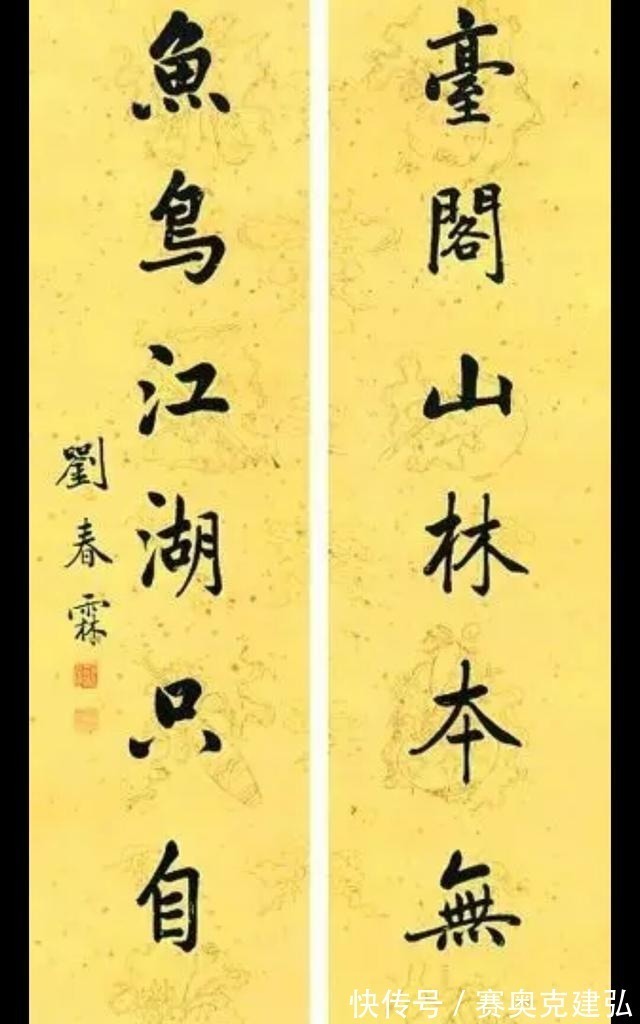 臺閣山林本無
魚鳥江湖只自
劉春霖
快传号 / 赛奥克建弘